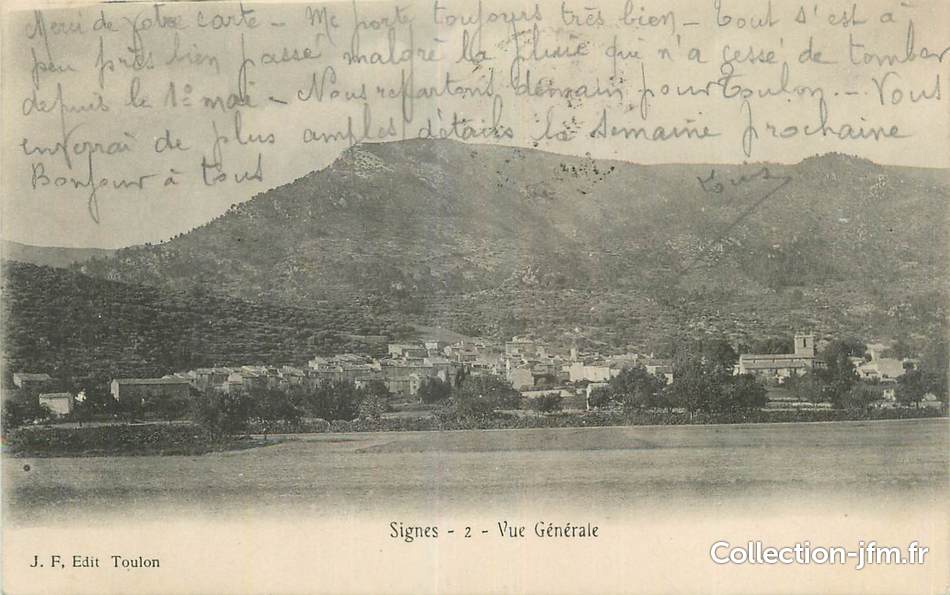 Merci de votre carte - Me porte toujours très bien - Tout s'est à
peu près bien passé malgré la pluie qui n'a cessé de tomber
depuis le 1º mai - Nous repartons demain pour Toulon - Vous
enverrai de plus amples détails la semaine prochaine
Bonjour à tous
Signes - 2 - Vue Générale
J. F, Edit Toulon
Collection-jfm.fr